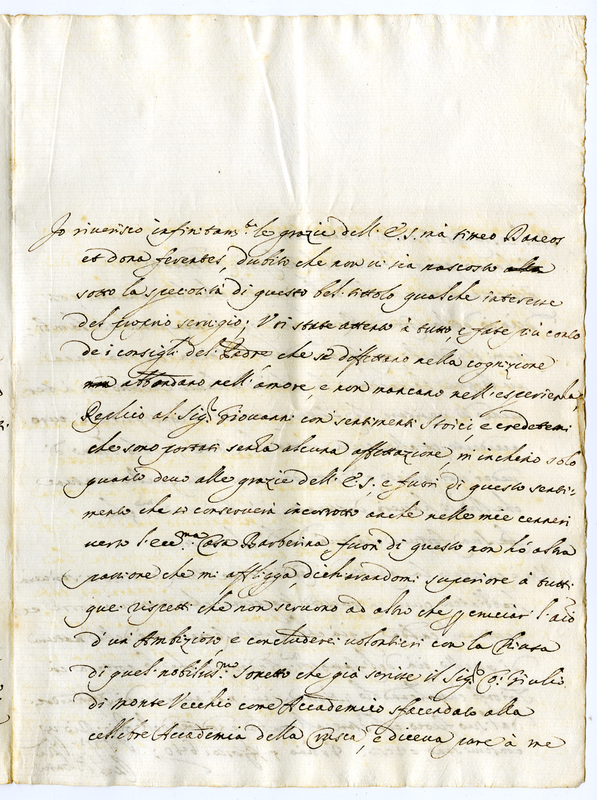 Io riverisco infinitam.te le grazie dell'E.S. mà timeo Danaos
et dona ferentes, dubito che non vi sia nascosto alla
sotto la speciosità di questo bel tittolo qualche interesse
del proprio servigio; Voi state attento à tutto, e fate più conto
de i consigli del Padre, che se diffettano nella cognizione
abbondano nell'amore, e non mancano nell'esperienza,
Replico al Sig.r Giovanni con sentimenti Stoici, e credetemi
che sono portati senza alcuna affettazione, m'inchino solo
quanto devo alle grazie dell'E.S, e fuori di questo senti-
mento che si conserverà incorrotto anche nelle mie ceneri
verso l'ecc.ma Casa Barberina fuori di questo non hò altra
passione che mi affligga, dichiarandomi superiore à tutti
quei rispetti che non servono ad altro che cruciar l'aīo
d'un Ambizioso, e concluderei volontieri con la Chiusa
di quel nobiliss.mo sonetto che già scrisse il Sig.r Co: Giulio
di Monte Vecchio come Accademico sfacendato alla
cellebre Accademia della Crusca, e diceva pure à me